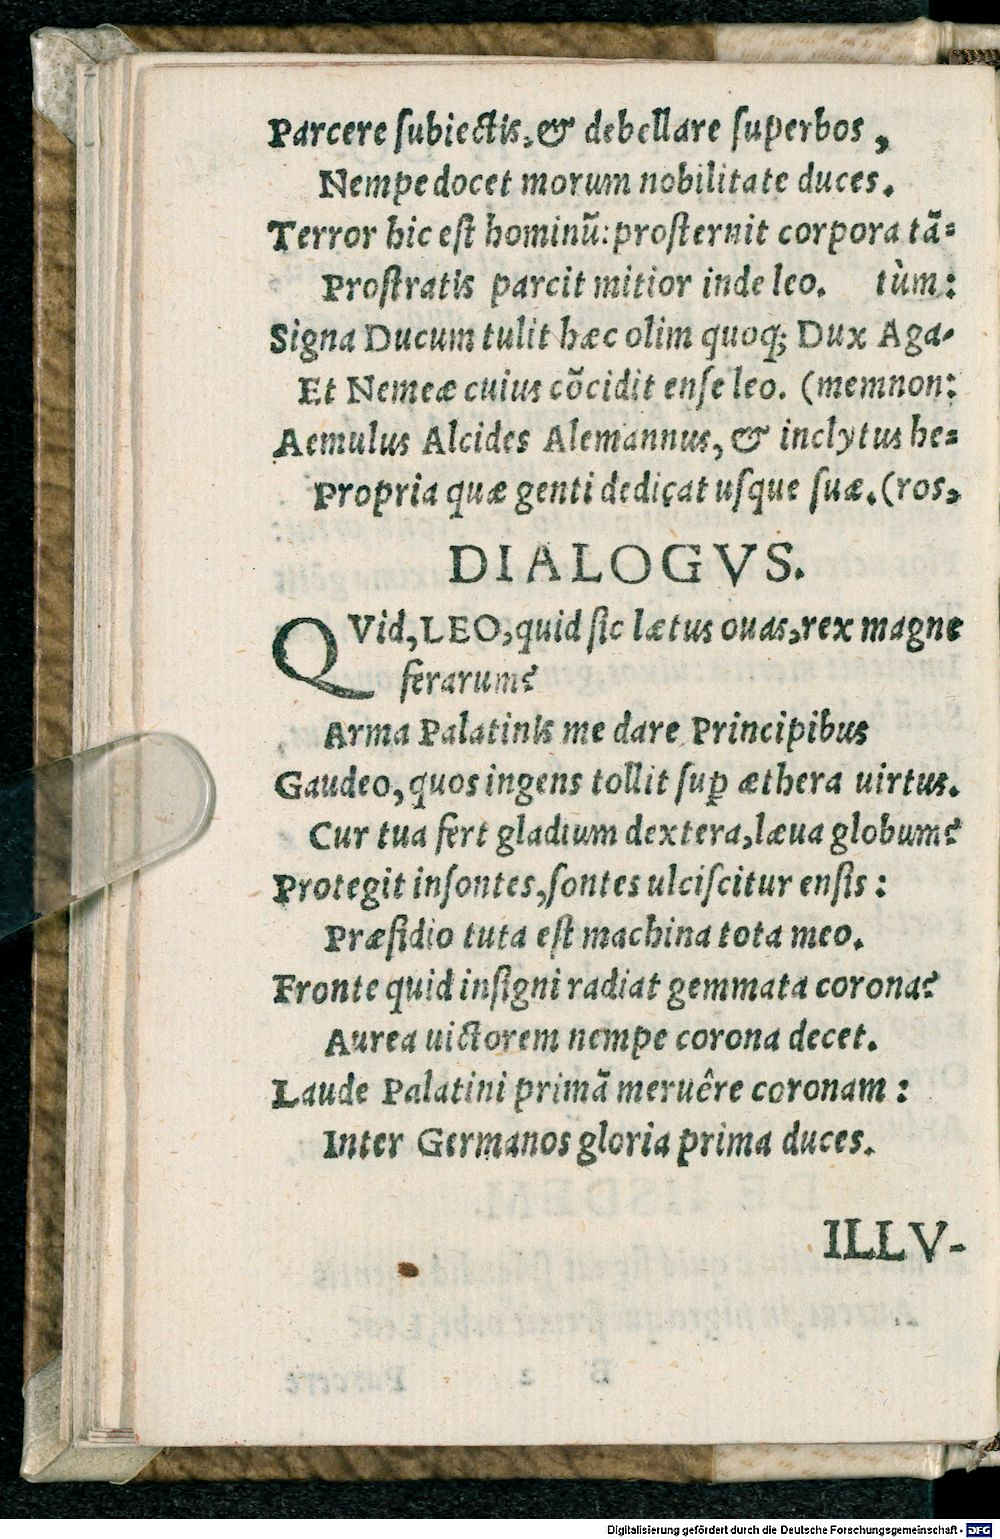 Parcere ſubiectis, & debellare ſuperbos,
Nempe docet morum nobilitate duces.
Terror hic eſt hominũ: proſternit corpora tã=
Proſtratis parcit mitior inde leo. tùm:
Signa Ducum tulit hæc olim quoq; Dux Aga-
Et Nemeæ cuius cõcidit enſe leo. (memnon:
Aemulus Alcides Alemannus, & inclytus he=
Propria quæ genti dedicat uſque ſuæ. (ros,
DIALOGVS.
QVid, LEO, quid ſic lætus ouas, rex magne
ferarum?
Arma Palatinis me dare Principibus
Gaudeo, quos ingens tollit ſuꝑ æthera uirtus.
Cur tua fert gladium dextera, læua globum?
Protegit inſontes, ſontes ulciſcitur enſis:
Præſidio tuta eſt machina tota meo.
Fronte quid inſigni radiat gemmata corona?
Aurea uictorem nempe corona decet.
Laude Palatini primã meruêre coronam:
Inter Germanos gloria prima duces.
ILLV-
Digitalisierung gefördert durch die Deutsche Forschungsgemeinschaft - DFG